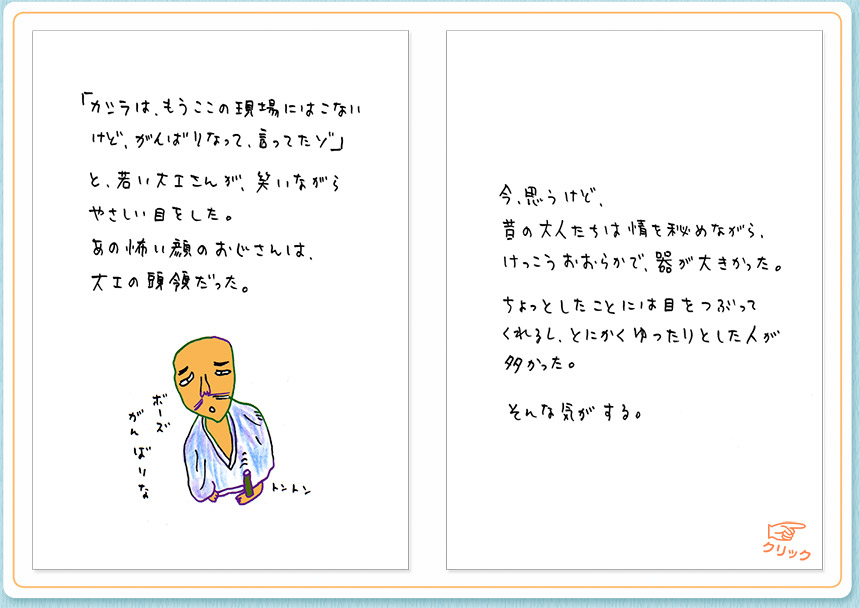 「カシラは、もうここの現場にはこない
けど、がんばりなって、言ってたゾ」
と、若い大工さんが、笑いながら
やさしい目をした。
あの怖い顔のおじさんは、
大工の頭領だった。
ボーズ
がんばりな
トントン
今、思うけど、
昔の大人たちは情を秘めながら、
けっこうおおらかで、器が大きかった。
ちょっとしたことには目をつぶって
くれるし、とにかくゆったりとした人が
多かった。
そんな気がする。
クリック